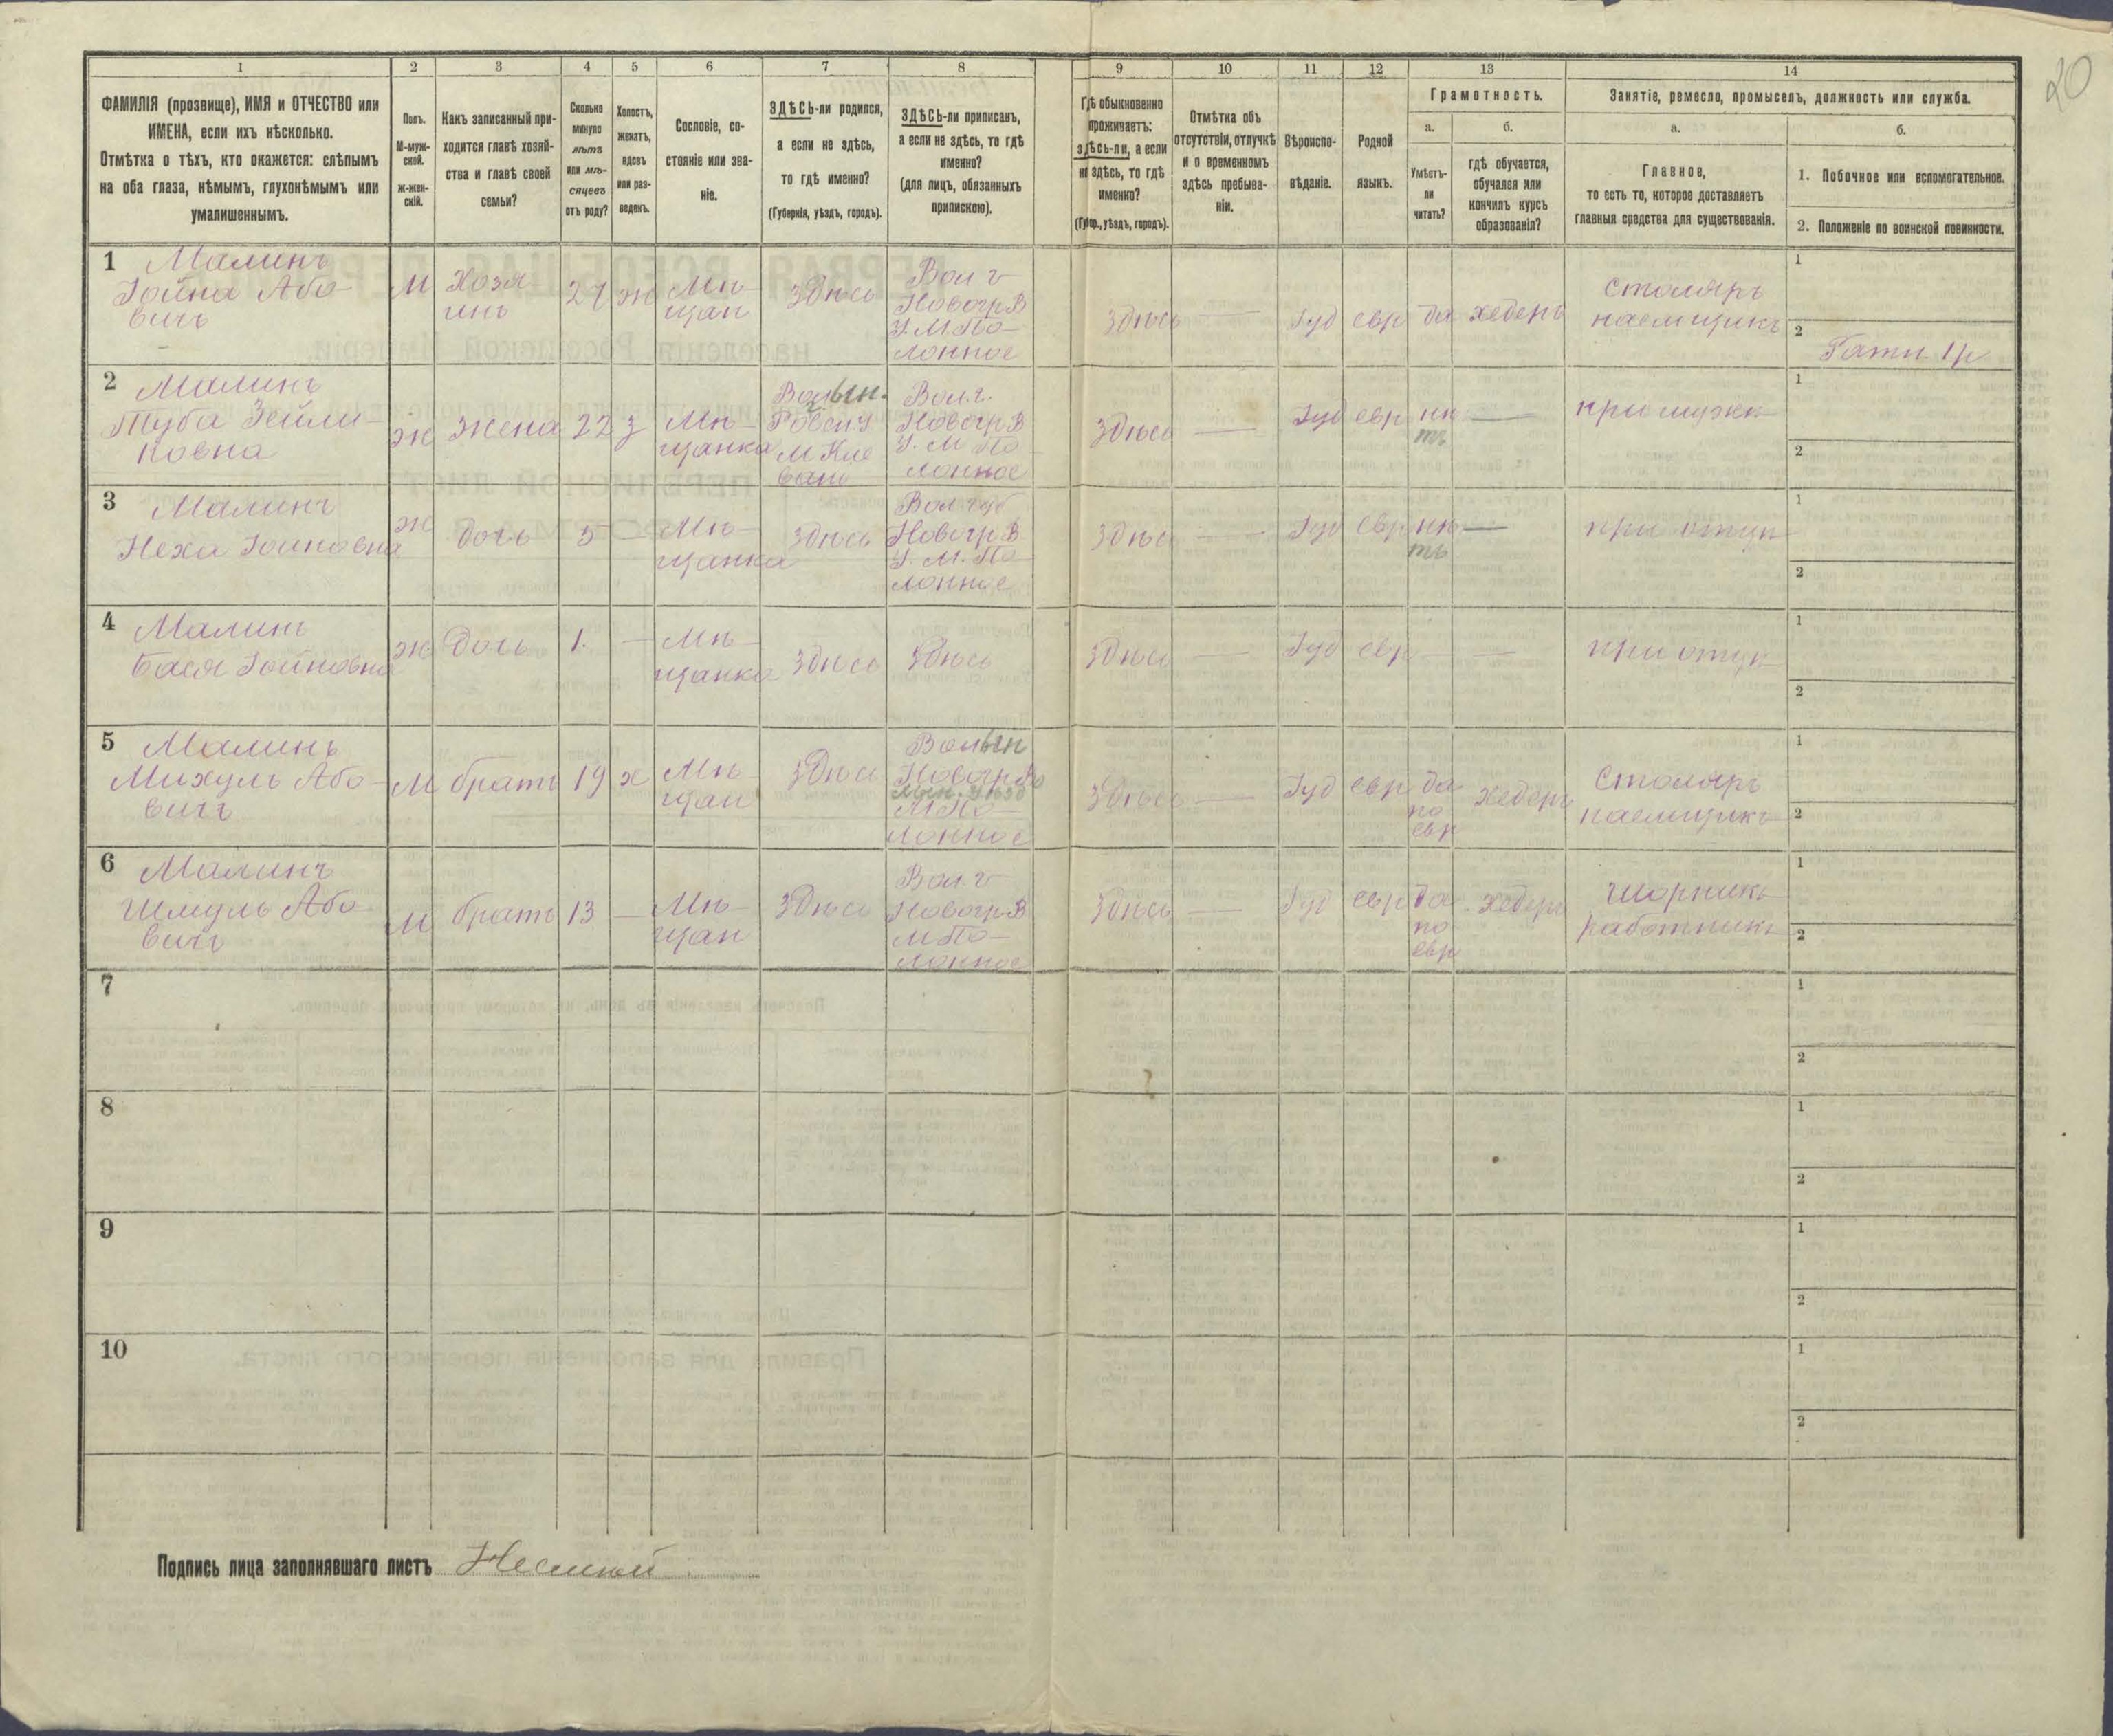 20
1 2 3 4 5 6 7 8 9 10 11 12 13 14
ФАМИЛІЯ (прозвище), ИМЯ и ОТЧЕСТВО или
ИМЕНА, если ихъ нѣсколько.
Отмѣтка о тѣхъ, кто окажется: слѣпымъ
на оба глаза, нѣмымъ, глухонѣмымъ или
умалишеннымъ.
Полъ.
М-муж-
ской.
ж-жен-
скій.
Какъ записанный при-
ходится главѣ хозяй-
ства и главѣ своей
семьи?
Сколько
минуло
лѣтъ
или мѣ-
сяцевъ
отъ роду?
Холостъ,
женатъ,
вдовъ
или раз-
веденъ.
Сословіе, со-
стояніе или зва-
ніе.
ЗДѢСЬ-ли родился,
а если не здѣсь,
то гдѣ именно?
(Губернія, уѣздъ, городъ).
ЗДѢСЬ-ли приписанъ,
а если не здѣсь, то гдѣ
именно?
(для лицъ, обязанныхъ
припискою).
Гдѣ обыкновенно
проживаетъ:
здѣсь-ли, а если
не здѣсь, то гдѣ
именно?
(Губер., уѣздъ, городъ).
Отмѣтка объ
отсутствіи, отлучкѣ
и о временномъ
здѣсь пребыва-
ніи.
Вѣроиспо-
вѣданіе.
Родной
языкъ.
Грамотность.
а.
Умѣетъ-
ли
читать?
б.
гдѣ обучается,
обучался или
кончилъ курсъ
образованія?
Занятіе, ремесло, промыселъ, должность или служба.
а.
Главное,
то есть то, которое доставляетъ
главныя средства для существованія.
б.
1. Побочное или вспомогательное.
2. Положеніе по воинской повинности.
1 Малинъ
Іойна Або-
вичъ
М
Хозя-
инъ
27
ж
Мѣ-
щан
Здѣсь
Вол г
Новогр В
У. М. По-
лонное
Здѣсь
—
Іуд
евр
да
хедеръ
Столяръ
наемщикъ
1
2
2 Малинъ
Туба Зейли-
ковна
ж
жена
22
з
Мѣ-
щанка
Волын.
Ровен У
М Кле
вань
Вол. г.
Новогр В
У. М По
лонное
Здѣсь
—
Іуд
евр
нѣ
тъ
—
при мужѣ
1
2
3 Малинъ
Неха Іойновна
ж
дочь
5
Мѣ-
щанка
Здѣсь
Вол губ
Новогр В
У. М. По-
лонное
Здѣсь
—
Іуд
Евр
нѣ
тъ
—
при отцѣ
1
2
4 Малинъ
Бася Іойновна
ж
дочь
1.
—
Мѣ-
щанка
Здѣсь
Здѣсь
Здѣсь
—
Іуд
евр
—
—
при отцѣ
1
2
5 Малинъ
Михуль Або-
вичъ
М
братъ
19
х
Мѣ
щан
Здѣсь
Волын
Новогр Во
лын. уѣзд
М По-
лонное
Здѣсь
—
Іуд
евр
да
по
евр
хедеръ
Столяръ
наемщикъ
1
2
6 Малинъ
Шмуль Або-
вичъ
М
братъ
13
—
Мѣ-
щан
Здѣсь
Вол. г
Новогр В
М По-
лонное
Здѣсь
—
Іуд
евр
да
по
евр
хедеръ
Шорникъ
работникъ
1
2
7
1
2
8
1
2
9
1
2
10
1
2
Подпись лица заполнявшаго листъ